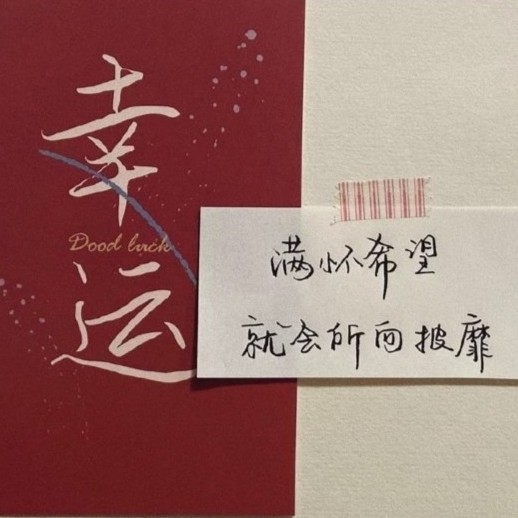 幸
Dood luck
运
满怀希望
就会所向披靡